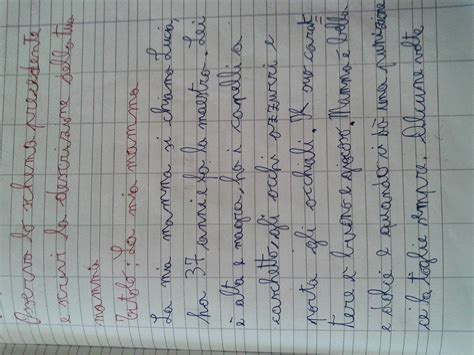 Osservo lo schema precedente
e scrivi la descrizione della tua
mamma
Titolo: La mia mamma
La mia mamma si chiama Luci,
ha 37 anni e fa la maestra. Lei
è alta e magra, ha i capelli a
caschetto, gli occhi azzurri e
porta gli occhiali. Il suo carat
tere è buono e giocoso. Mamma è bella
e dolce e quando ci dà una punizione
ce la toglie sempre. Alcune volte